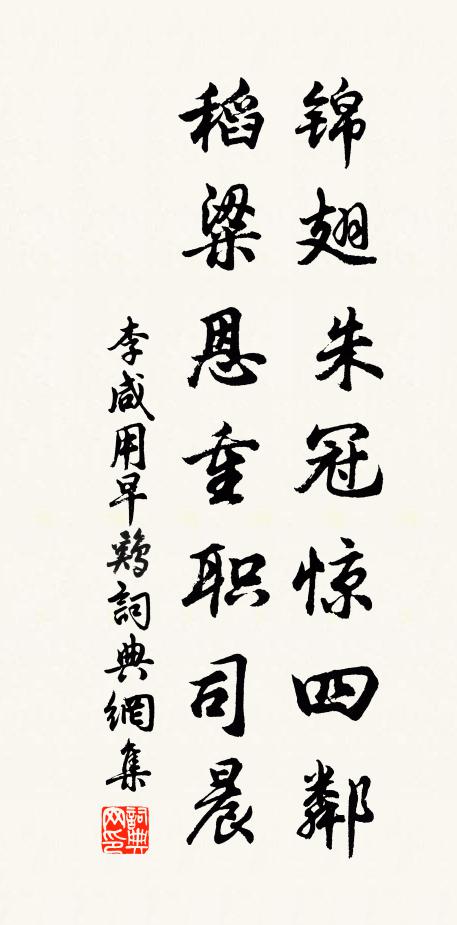 锦翅朱冠惊四鄰
稻粱恩重职司晨
李咸用早鷄詞典網集
詞典网印